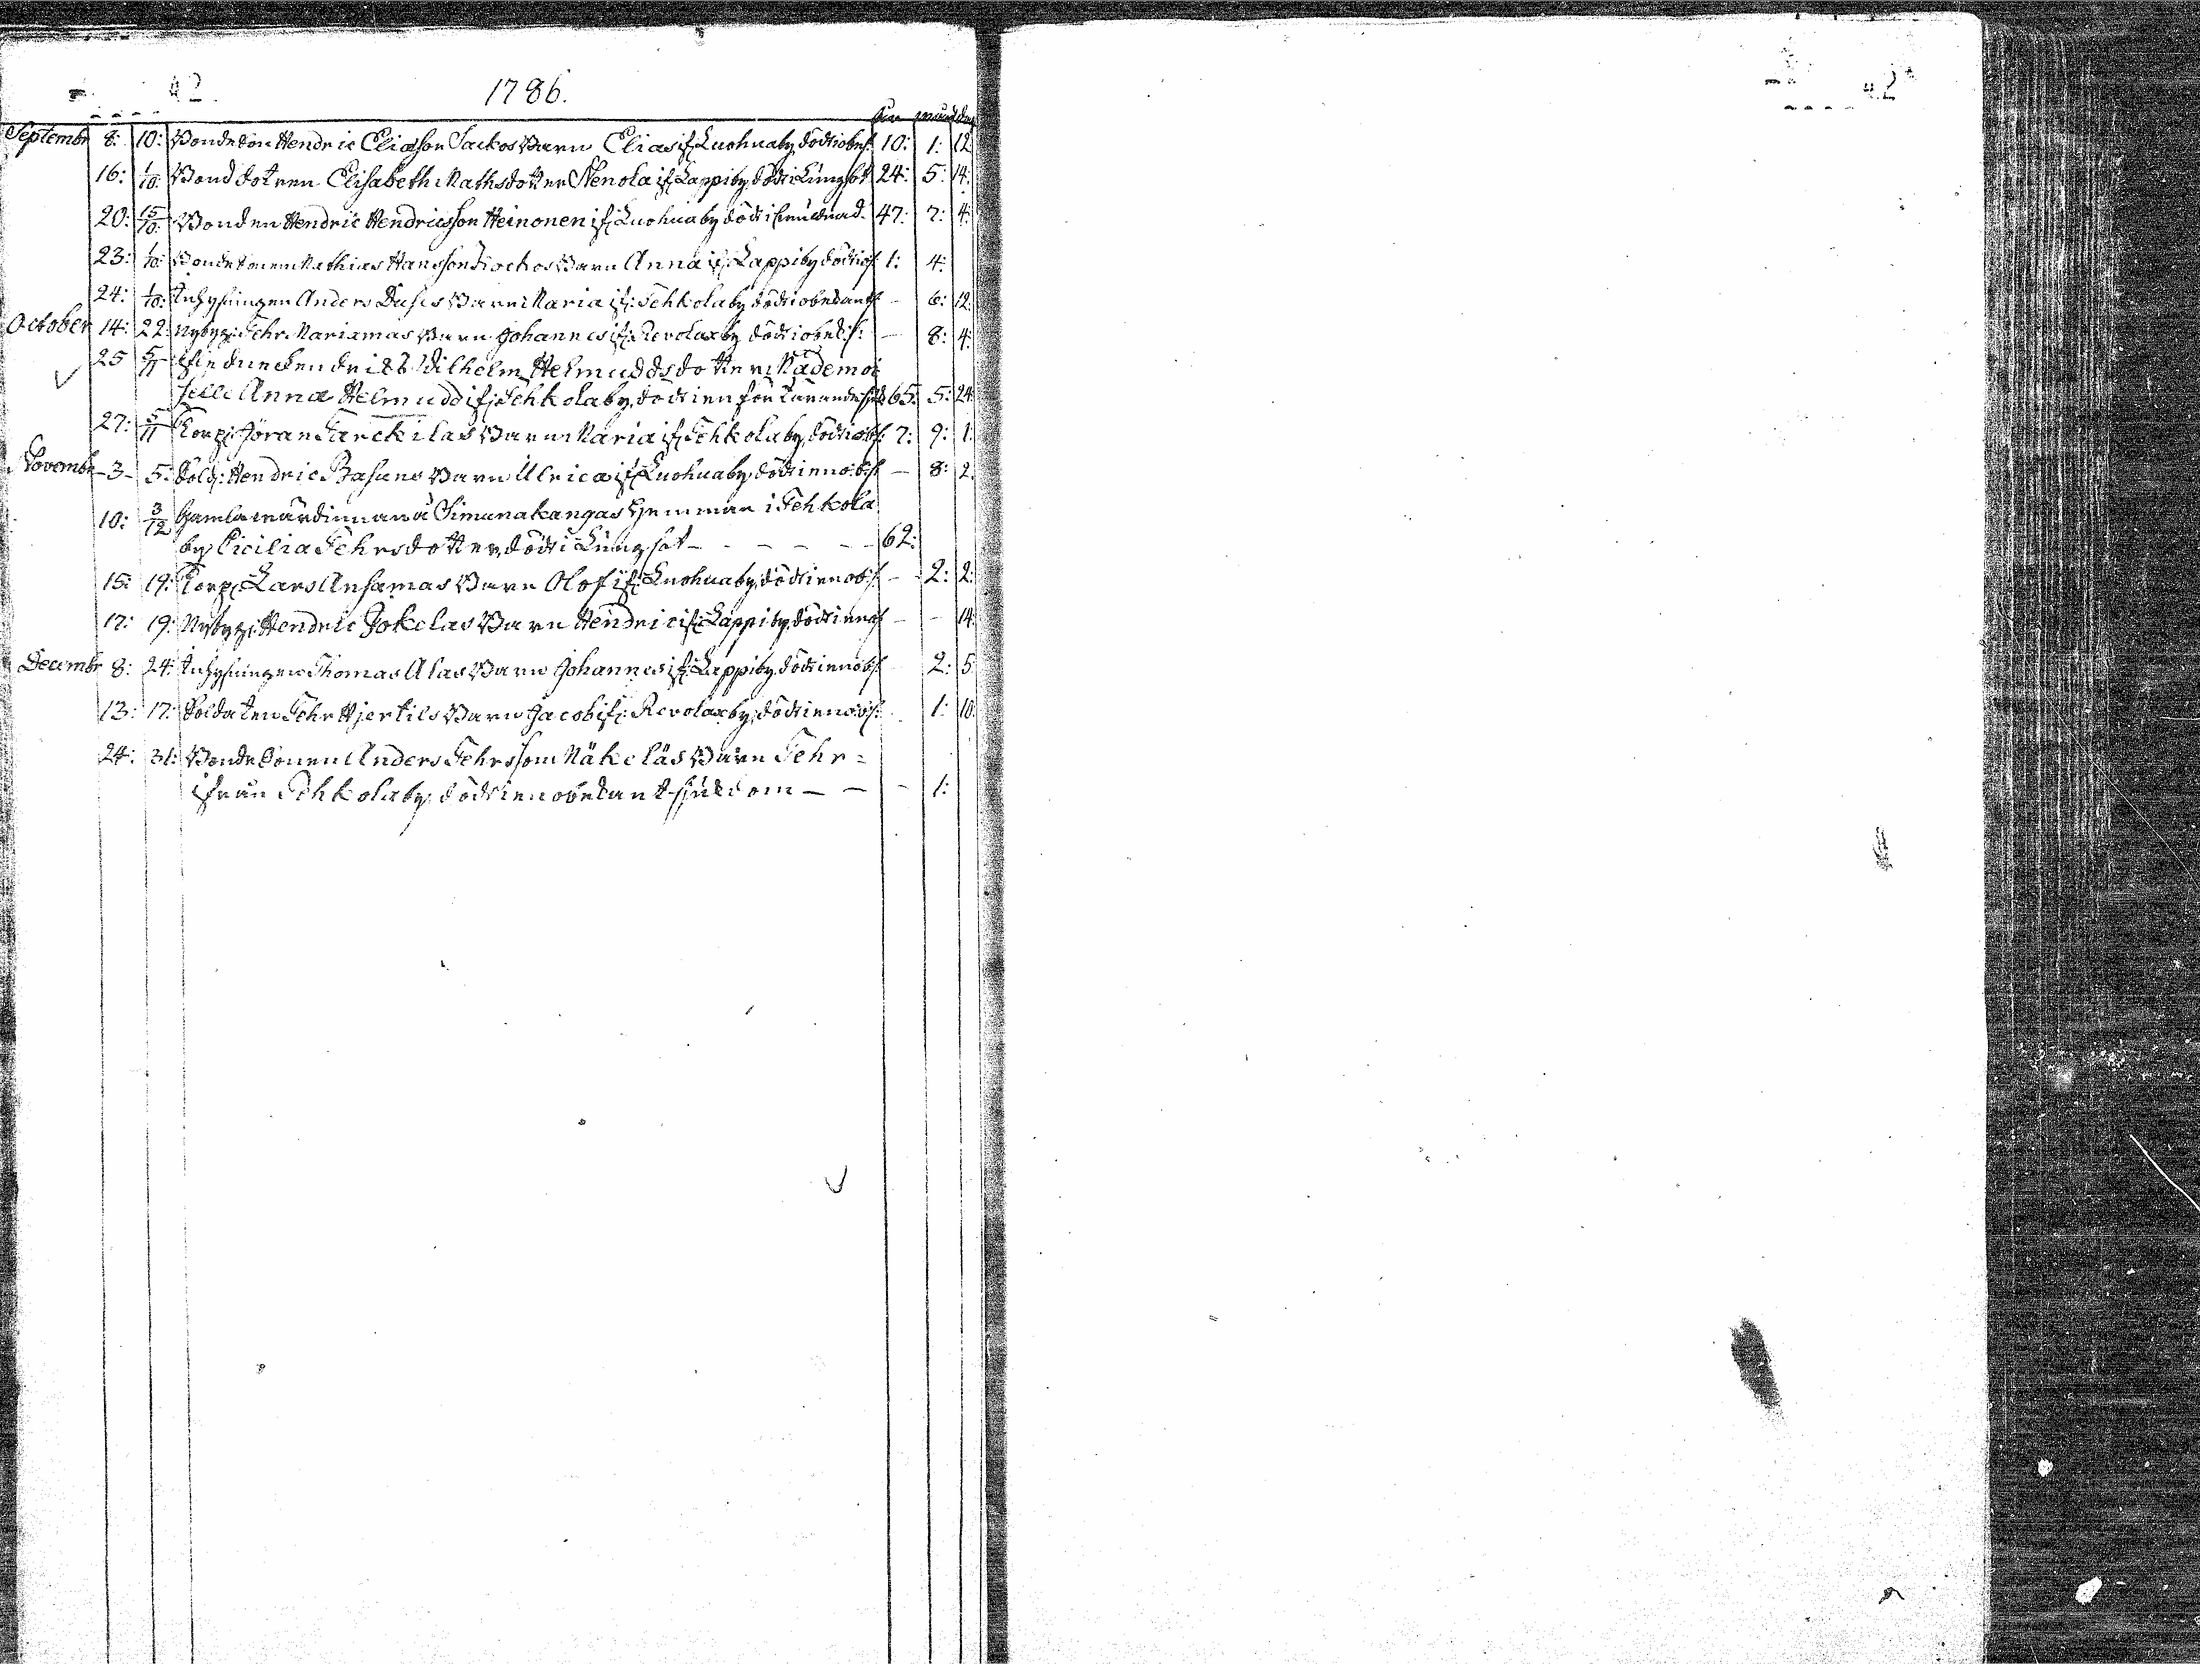 42.
1786.
42
åhr månad dag
Septembr 8: 10: Bondeson Hendric Eliasson Sackos Barn Elias if: Luohuaby, död i obek: 10: 1: 12
16: 1/10: Bonddotren Elisabeth Mathsdotter Nenola if: Lappiby, död i Lungsot 24: 5: 14:
20: 15/10: Bonden Hendric Hendricsson Heinonen if: Luohuaby död i 47: 7: 4:
23: 1/10: Bondesonen Mathias Hansson Barn Anna if: Lappiby död i 1: 4:
24: 1/10: Inhysingen Anders Barn Maria if: Tehkolaby, död i obekant – 6: 12:
October 14: 22: Nybygg: Tehr Mariamas Barn Johannes if: Revolaxby död i obek: s: – 8: 4:
25 5/11 Wilhelm Helmuddsdotter Mademoi
selle Anna Helmudd if: Tehkolaby, död i en förtärande 65: 5: 24
27: 5/11 Korp: Jöran Tanckilas Barn Maria if: Tehkolaby, död i ob: s: 7: 9: 1:
Novembr –3– 5: Sold: Hendric Basuns Barn Ulrica if: Luohuaby, död i en ob: s: – 8: 2:
10: 3/12 Gamla wärdinnan å Simunakangas Hemman i Tehkola
by Cicilia Tehrsdotter död i Lungsot – – – – – 62:
15: 19: Korp: Lars Ansamas Barn Olof if: Luohuaby, död i en ob: s: – 2: 2:
17: 19: Nybygg: Hendric Jokelas Barn Hendric if: Lappiby, död i en – – 14
Decembr 8: 24 Inhysingen Thomas Alas Barn Johannes if: Lappiby, död i en ob: s: 2: 5
13: 17: Soldaten Tehr Hjertils Barn Jacob if: Revolaxby, död i en ob: s: 1: 10
24: 31: Bondesonen Anders Tehrsson Näkeläs Barn Tehr =
ifrån Tehkolaby, död i en obekant sjukdom – – – 1: